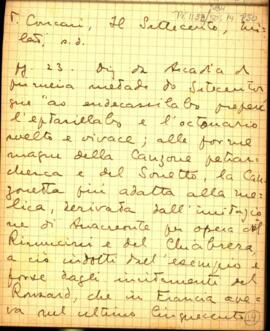 T. Concari, Il Settecento, Mi-
lano, s.d.
Pg. 23. Diz da Arcadia da
primeira metade do Setecentos
que "ao endecasillabo preferì
l'eptasillabo e l'ottonario
svelto e vivace; alle forme
magne della Canzone petrar-
chesca e del Sonetto, la Can
zonetta più adatta alla me-
lica, derivata dall'imitazio
ne di Anacreonte per opera del
Rinuccini e del Chiabrera,
a ciò indotti dall'esempio e
forse dagli incitamenti del
Ronsard, che in Francia ave-
va nell'ultimo Cinquecento